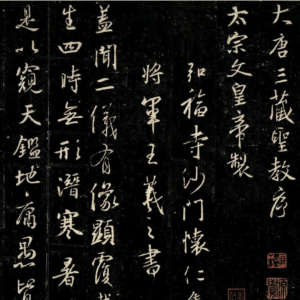 大唐三藏聖教序
太宗文皇帝製
弘福寺沙門懷仁集
將軍王羲之書
蓋聞二儀有像顯覆載
生四時無形潛寒暑
是以窺天鑑地庸愚皆